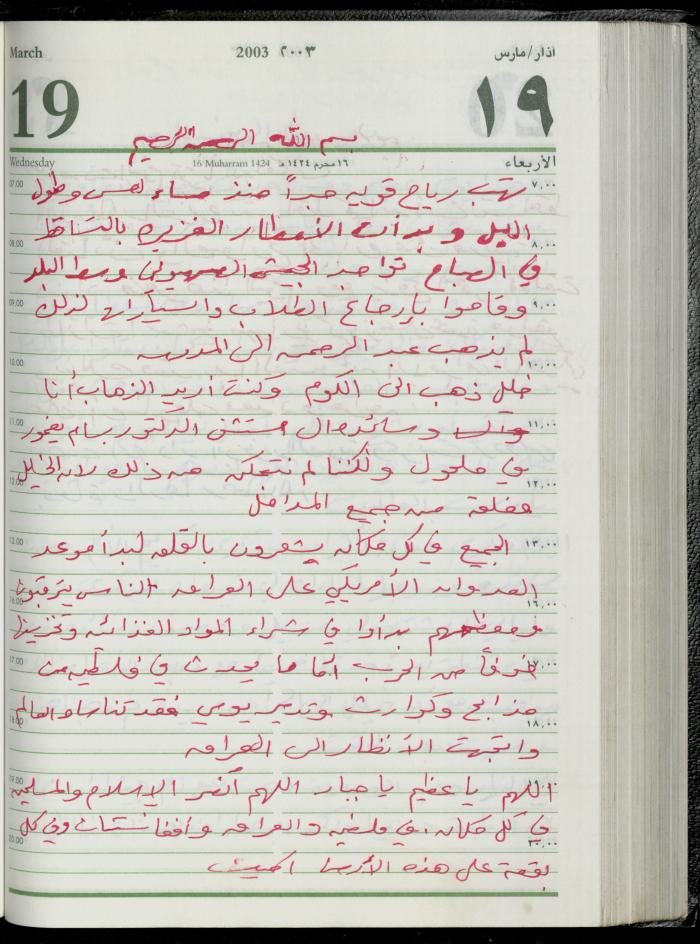 March 2003 ٢٠٠٣ اذار/مارس
19 ١٩
بسم الله الرحمن الرحيم
Wednesday 16 Muharram 1424 ١٦ محرم ١٤٢٤ هـ الأربعاء
07.00 تهب رياح قويه جداً منذ مساء امس وطول ٧,٠٠
الليل وبدأت الأمطار الغزيره بالتساقط
08.00 في الصباح تواجد الجيش الصهيوني وسط البلد ٨,٠٠
09.00 وقاموا بإرجاع الطلاب والسيارات لذلك ٩,٠٠
لم يذهب عبد الرحمن الى المدرسه
10.00 ١٠,٠٠
خلل ذهب الى الكوم وكنت أريد الذهاب أنا
11.00 وسائد مستشفى الدكتور بسام يغمور ١١,٠٠
في حلحول ولكننا لم نتمكن من ذلك لان الخليل
12.00 مغلقة من جميع المداخل ١٢,٠٠
13.00 الجميع في كل مكان يشعرون بالقلق لبدأ موعد ١٣,٠٠
العدوان الأمريكي على العراق الناس يترقبون
16.00 ومعظمهم بدأوا في شراء المواد الغذائيه وتخزينها ١٦,٠٠
17.00 خوفاً من الحرب اما ما يحدث في فلسطين من ١٧,٠٠
مذابح وكوارث وتدمير يومي فقد تناساه العالم
18.00 واتجهت الأنظار الى العراق ١٨,٠٠
19.00 اللهم يا عظيم يا جبار اللهم أنصر الإسلام والمسلمين
في كل مكان في فلسطين والعراق وأفغانستان وفي كل
20.00 بقعة على هذه الأرض ٢٠,٠٠